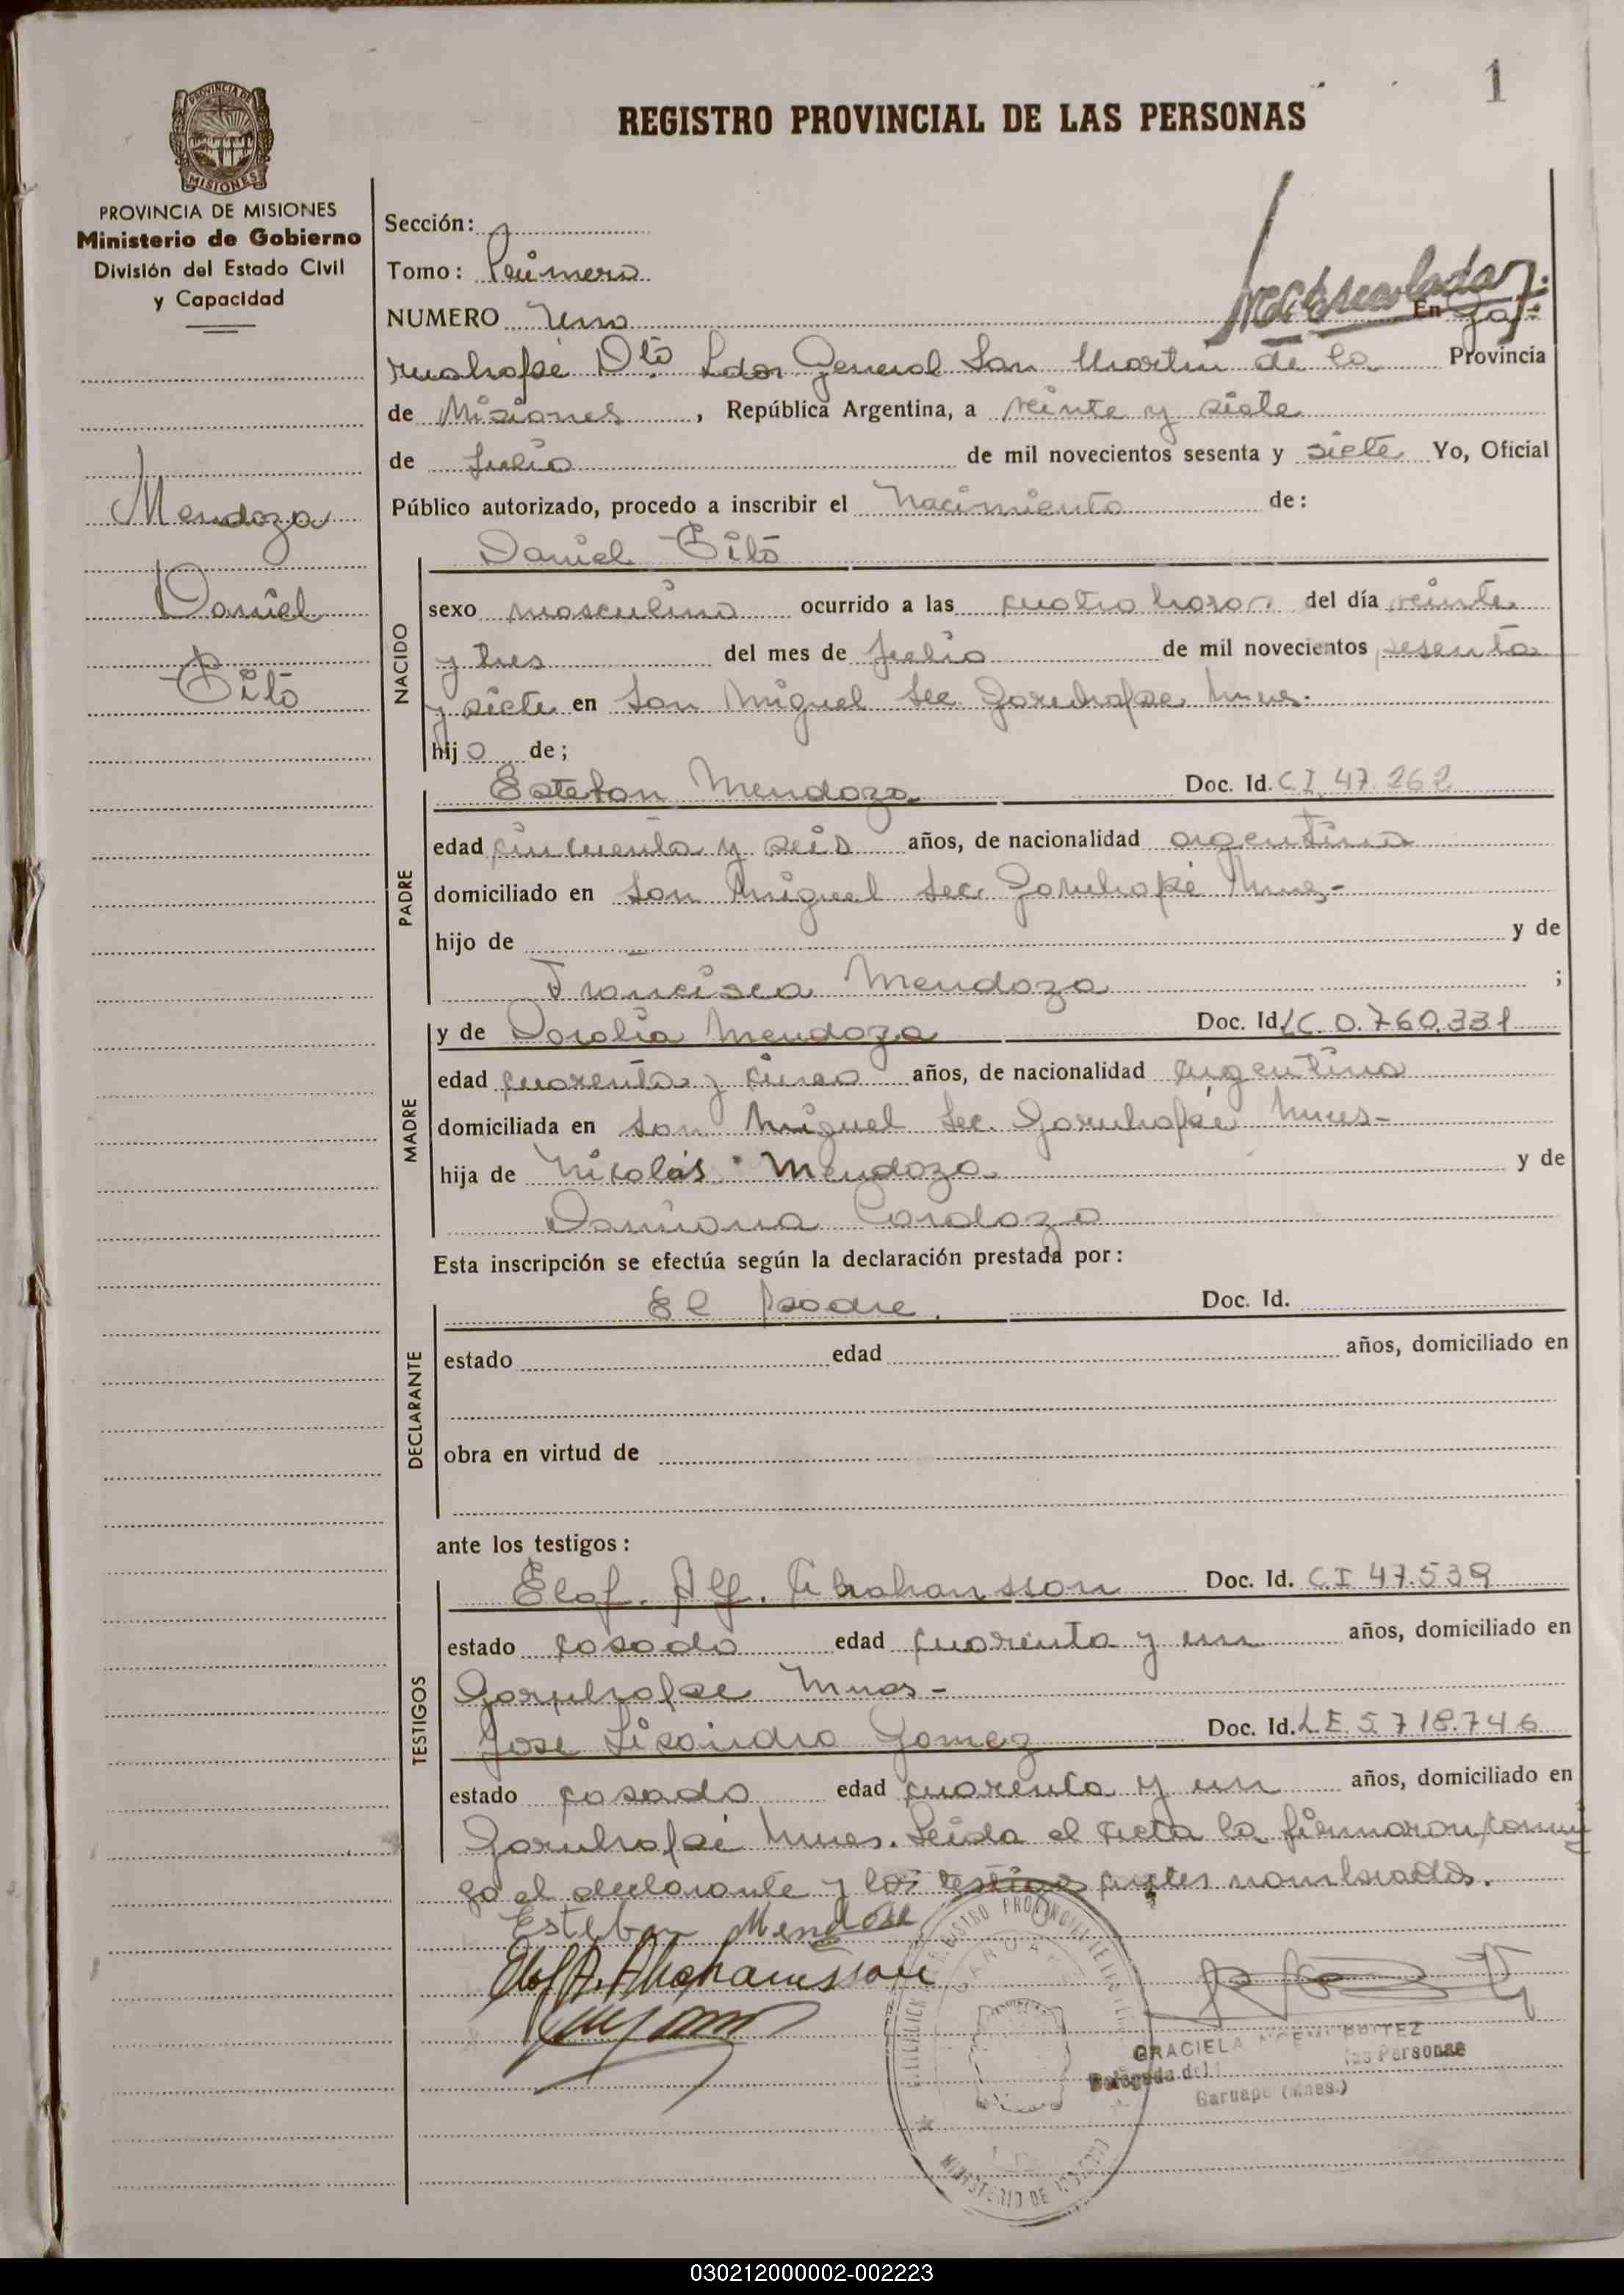 1
REGISTRO PROVINCIAL DE LAS PERSONAS
PROVINCIA DE
MISIONES
PROVINCIA DE MISIONES
Ministerio de Gobierno
División del Estado Civil
y Capacidad
Mendoza
Daniel
Tito
Sección:
Tomo: Primero
NUMERO Uno En Ga-
ruhapé Dto Ldor General San Martín de la Provincia
de Misiones, República Argentina, a veinte y siete
de Julio de mil novecientos sesenta y siete Yo, Oficial
Público autorizado, procedo a inscribir el Nacimiento de:
Daniel Tito
NACIDO
sexo masculino ocurrido a las cuatro horas del día veinte
y tres del mes de Julio de mil novecientos sesenta
y siete en San Miguel Sec. Garuhape Mnes.
hijo de;
PADRE
Esteban Mendoza Doc. Id. C.I. 47.262
edad cincuenta y seis años, de nacionalidad argentina
domiciliado en San Miguel Sec. Garuhapé Mnes-
hijo de — y de
Francisca Mendoza ;
MADRE
y de Doralia Mendoza Doc. Id. L.C. 0.760.331
edad cuarenta y cinco años, de nacionalidad argentina
domiciliada en San Miguel Sec. Garuhapé Mnes-
hija de Nicolás Mendoza y de
Damiana Cardozo
Esta inscripción se efectúa según la declaración prestada por:
DECLARANTE
El padre. Doc. Id.
estado edad años, domiciliado en
obra en virtud de
ante los testigos:
TESTIGOS
Elof. Alf. Abrahansson Doc. Id. C.I 47.539
estado casado edad cuarenta y un años, domiciliado en
Garuhape Mnes-
Jose Lisandro Gomez Doc. Id. L.E. 5.718.746
estado casado edad cuarenta y un años, domiciliado en
Garuhapé Mnes. Leida el acta la firmaron conmi
go el declarante y los testigos antes nombrados.
Esteban Mendosa
Elof A. Abrahamsson
GRACIELA NOEMI BRITEZ
Delegada del las Personas
Garuape (Mnes.)
MINISTERIO DE
030212000002-002223